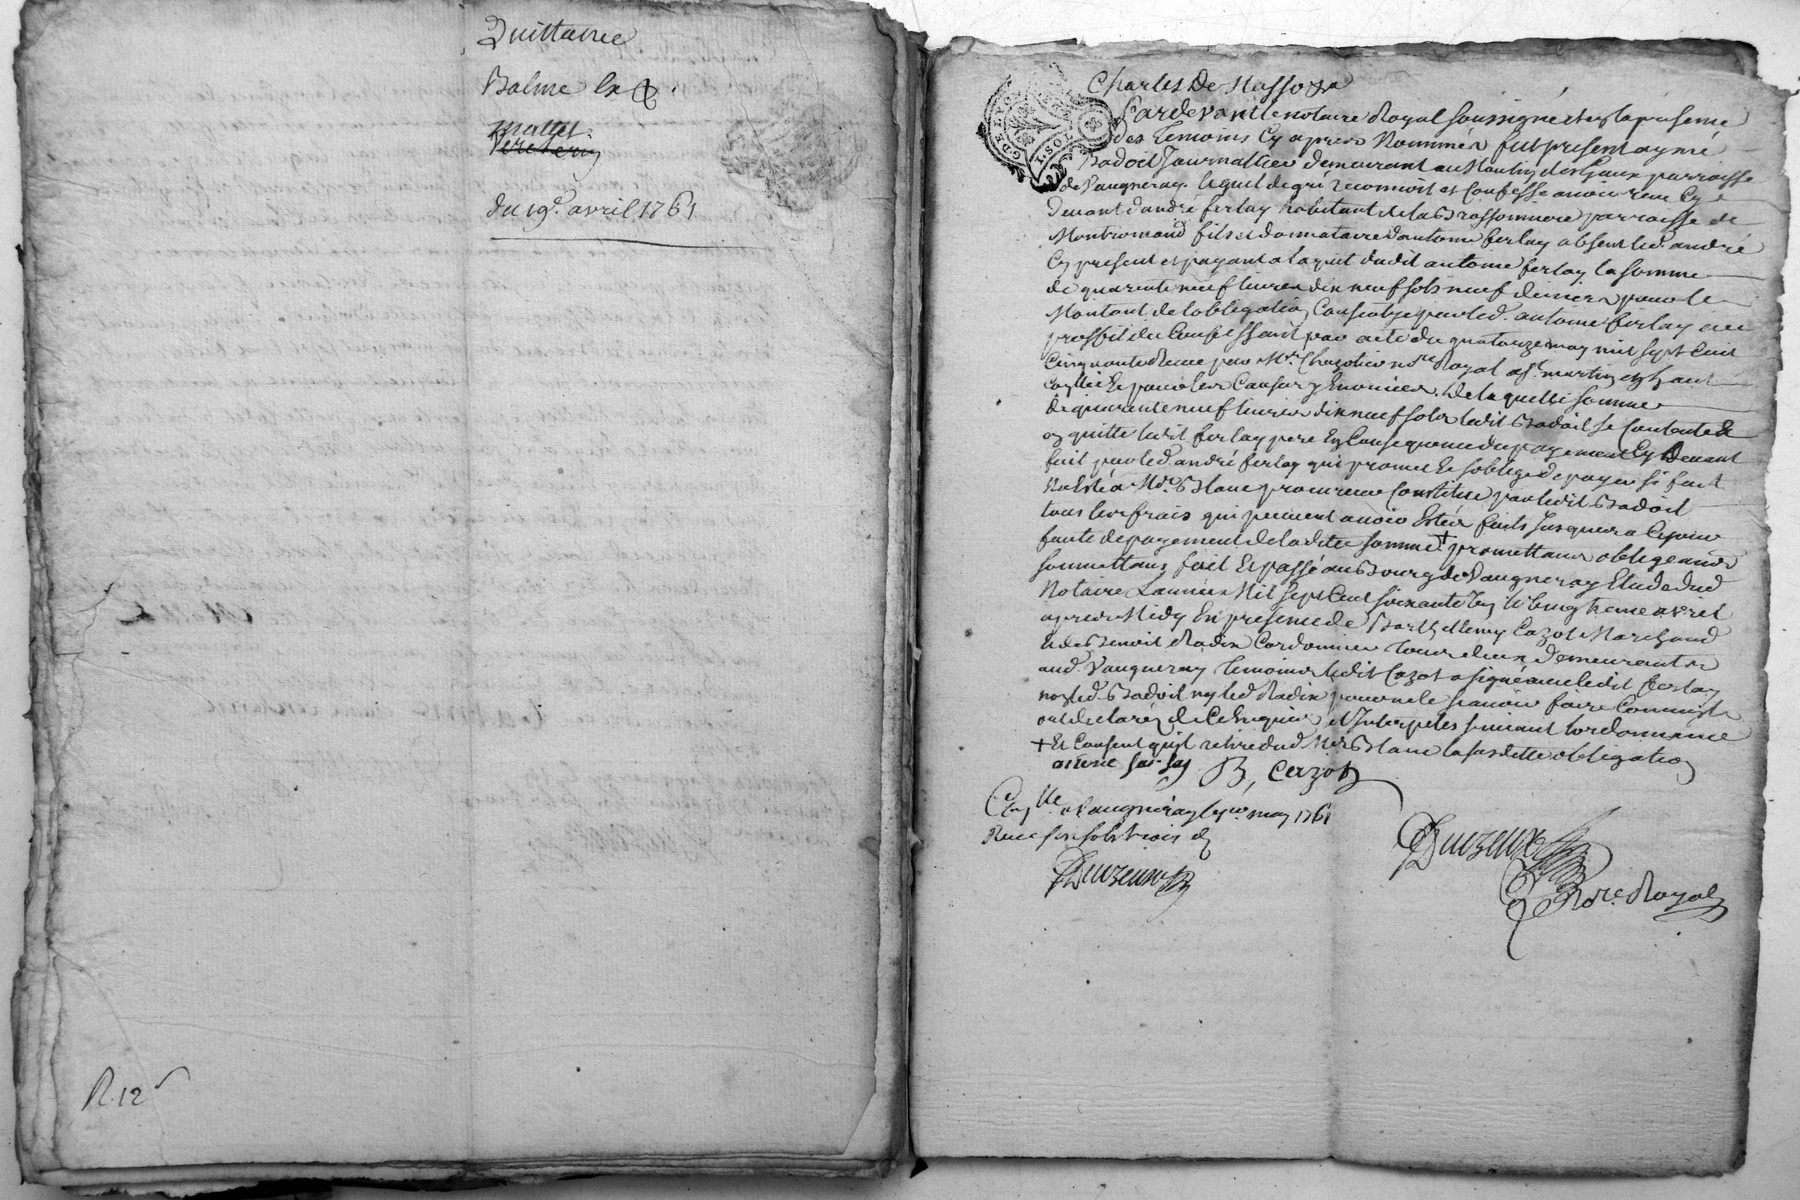 Quittance
Balme la
Mallet
du 19e. avril 1761
R. 12
Charles De Masso
Pardevant le notaire Royal soussigné et en la presence
des temoins cy apres Nommés fut present aymé
Badoit Journallier demeurant au Moulin des Gaux parroisse
de Vaugneray. lequel de gré reconnoit et Confesse avoir reçu cy
devant d'andré ferlay habitant de la Brassonniere parroisse de
Montromand fils et donnataire d'antoine ferlay absent led. andré
cy present et payant a l'aquit dudit antoine ferlay la somme
de quarante neuf livres dix neuf sols neuf deniers pour le
Montant de l'obligation Consentye par led. antoine ferlay au
proffit du Confessant par acte du quatorze may mil sept Cent
Cinquante neuf par Me. Chazotier nore. Royal a St. martin en haut
Contlée et pour les Causes y Enoncées. De laquelle somme
de quarante neuf livres dix neuf sols ledit Badoit se Contente et
en quitte ledit ferlay pere En Consequence du payement Cy Devant
fait par led. andré ferlay qui promet et s'oblige de payer si fait
n'a Esté a Me. Blanc procureur Constitué par ledit Badoit
tous les frais qui peuvent avoir Estés faits Jusques a Ce jour
faute de payement de la ditte somme + promettans obligeans
soumettans fait et passé au Bourg de Vaugneray Etude dud.
Notaire L'année Mil sept Cent soixante un le vingtieme avril
apres Midy En presence de Barthellemy Cazot Marchand
et de Benoit Radix Cordonnier tous deux demeurant
aud. Vaugneray temoins ledit Cazot a signé avec ledit ferlay
non led. Badoit ny led. Radix pour ne le sçavoir faire Comme ils
ont declaré de Ce Enquis et Interpelés suivant l'ordonnance
+ Et Consent qu'il retire dud. Me. Blanc la susditte obligation
B, Cazot
Contlle. a Vaugneray le 1er. may 1761
Reçu six sols trois d
Duvzeux
Duvzeux
Nore. Royal